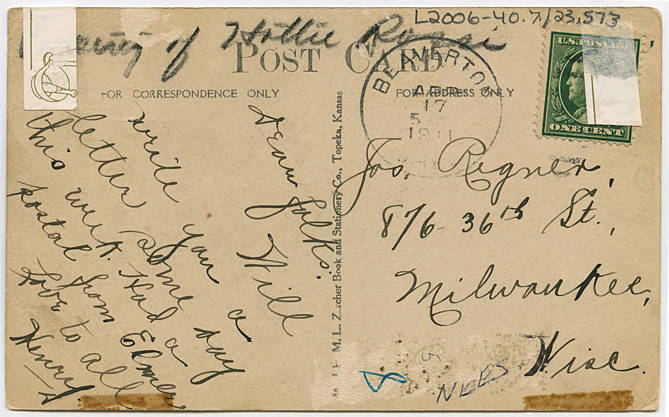 L2006-40.7/23,573
of Hottie Rossi
POST CARD
FOR CORRESPONDENCE ONLY
FOR ADDRESS ONLY
BEAVERTO
APR
17
5
1911
U.S. POSTAGE
ONE CENT
Dear folks:
Will
write you a
letter some day
this week. Had a
postal from Elmer
Love to all
Henry
M. L. Zercher Book and Stationery Co., Topeka, Kansas
Jos. Regner,
876-36th St.,
Milwaukee,
Wisc.
8